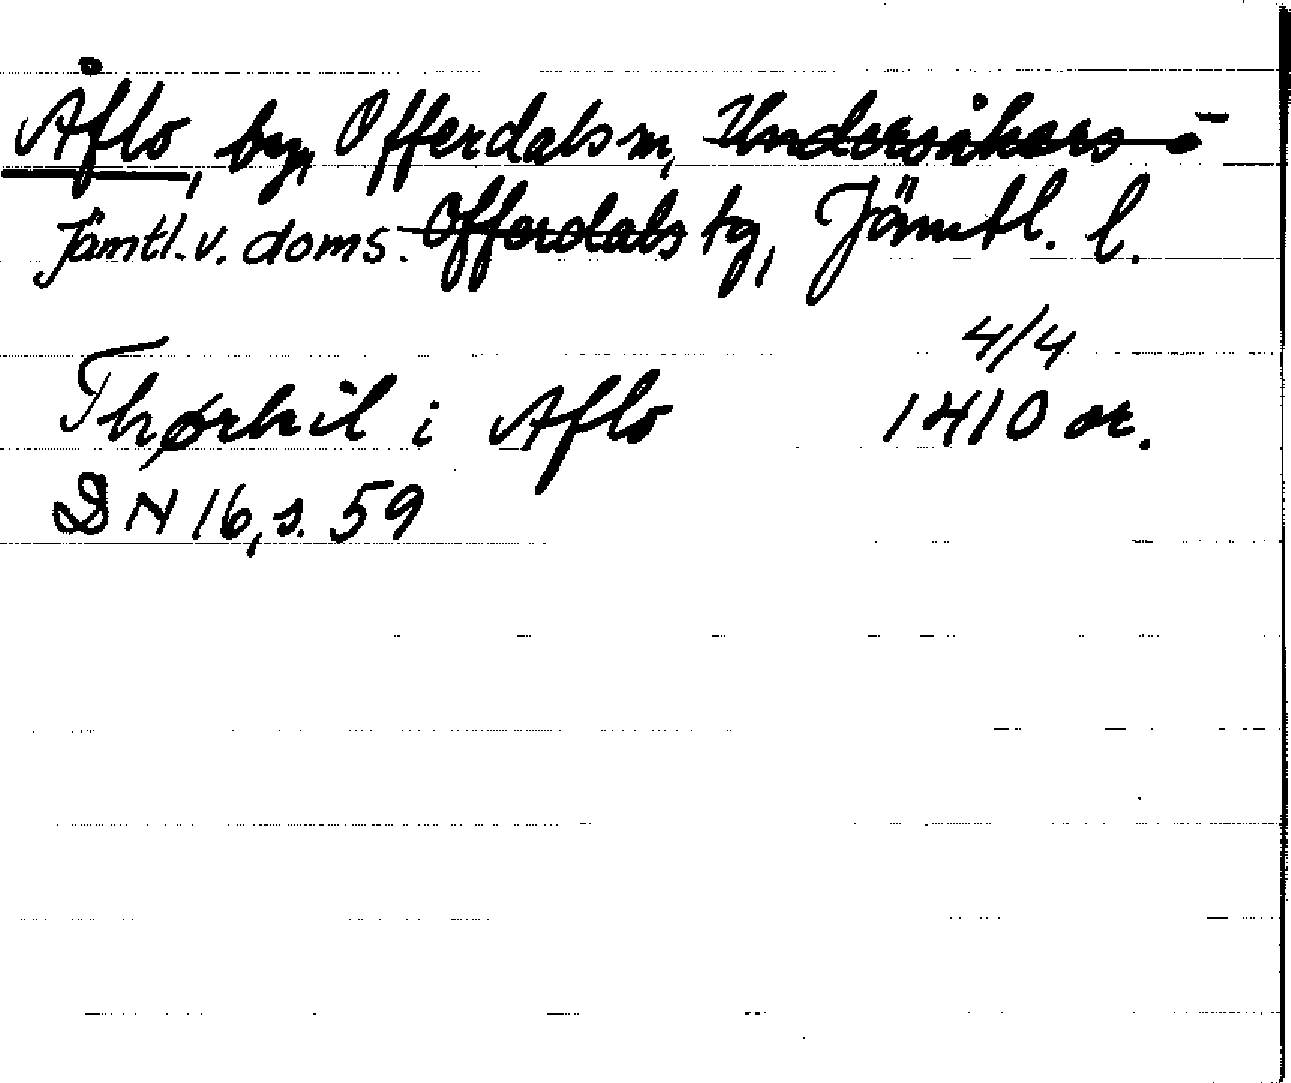 Åflo, by, Offerdals sn, Undersåkers o
Jämtl. v. doms. Offerdals tg, Jämtl. l.
4/4
Thørkil i Aflo 1410 or.
DN 16, s. 59